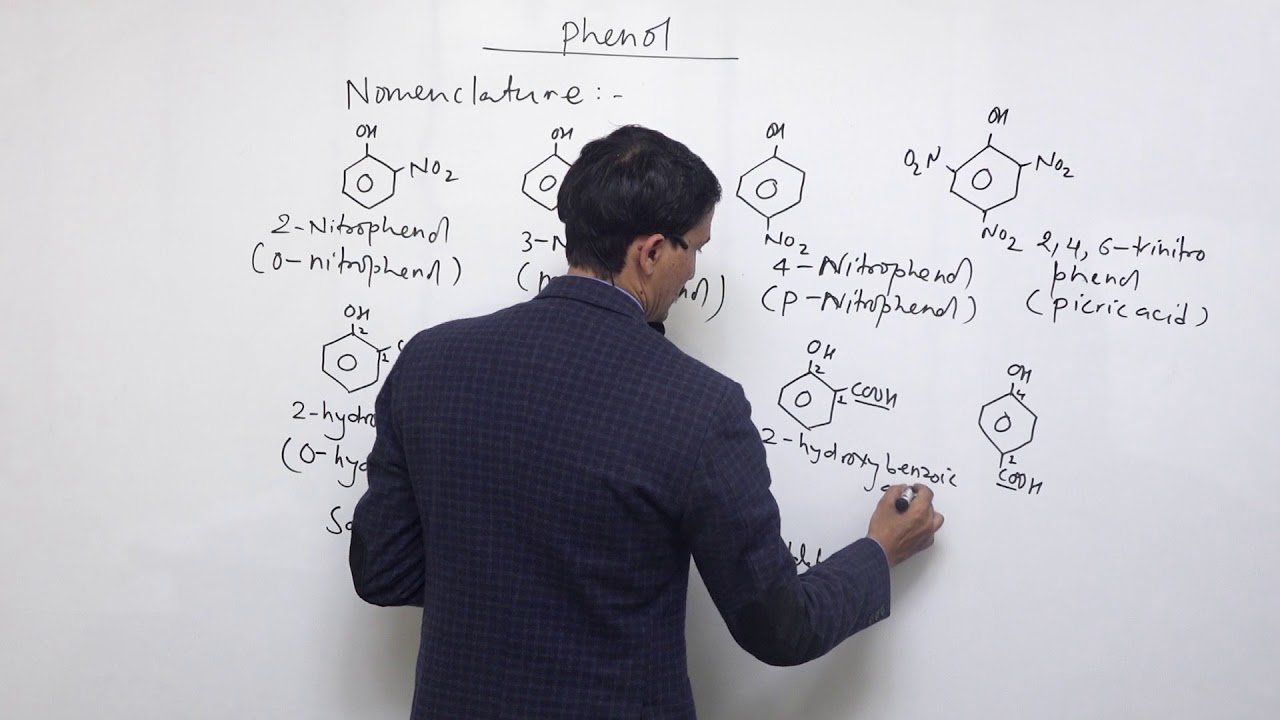 Phenol
Nomenclature :-
OH
NO2
2-Nitrophenol
(o-nitrophenol)
OH
3-N
OH
NO2
4-Nitrophenol
(P-Nitrophenol)
OH
O2N
NO2
NO2
2,4,6-trinitro
phenol
(picric acid)
OH
2
1
2-hydro
(O-hyd
OH
2
1
COOH
2-hydroxybenzoic
OH
4
COOH